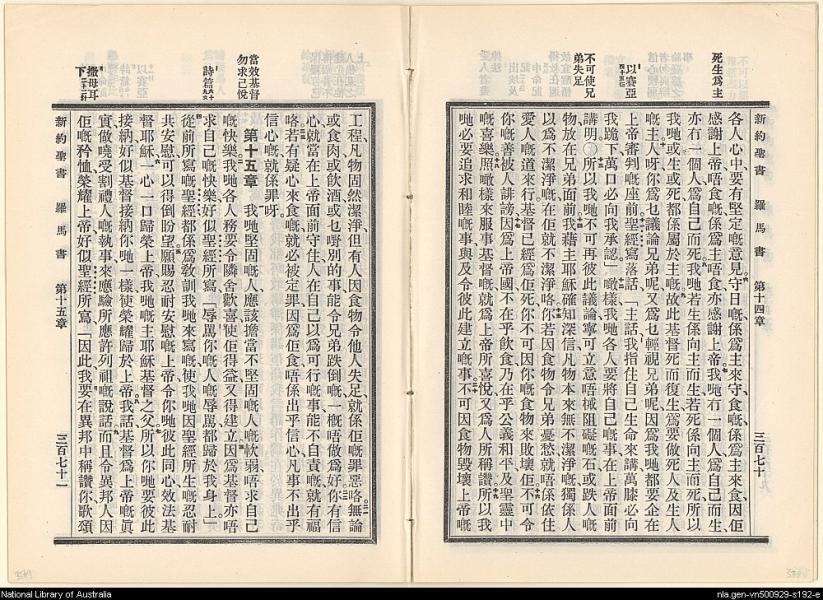 死生爲主
以賽亞
不可使兄
弟失足
新約聖書 羅馬書 第十四章 三百七十
各人心中要有堅定嘅意見守日嘅係爲主來守食嘅係爲主來食因佢
感謝上帝唔食嘅係爲主唔食亦感謝上帝我哋冇一個人爲自己而生
亦冇一個人爲自己而死我哋若生係向主而生若死係向主而死所以
我哋或生或死都係屬於主嘅故此基督死而復生爲要做死人及生人
嘅主人呀你爲乜議論兄弟呢又爲乜輕視兄弟呢因爲我哋都要企在
上帝審判嘅座前聖經寫落話「主話我指住自己生命來講萬膝必向
我跪下萬口必向我承認」噉樣我哋各人要將自己嘅事在上帝面前
講明○所以我哋不可再彼此議論寧可立意唔 阻礙嘅石或跌人嘅
物放在兄弟面前我藉主耶穌確知深信凡物本來無不潔淨嘅獨係人
以爲不潔淨嘅在佢就不潔淨咯你若因食物令兄弟憂愁就唔係依住
愛人嘅道來行基督已經爲佢死你不可因你嘅食物來敗壞佢不可令
你嘅善被人誹謗因爲上帝國不在乎飲食乃在乎公義和平及聖靈中
嘅喜樂照噉樣來服事基督嘅就爲上帝所喜悅又爲人所稱讚所以我
哋必要追求和睦嘅事與及令彼此建立嘅事不可因食物毀壞上帝嘅
當效基督
勿求己悅
詩篇
撒母耳
下
工程凡物固然潔淨但有人因食物令他人失足就係佢嘅罪惡咯無論
或食肉或飲酒或乜嘢別的事能令兄弟跌倒嘅一概唔做爲好你有信
心就當在上帝面前守住人在自己以爲可行嘅事能不自責嘅就有福
咯若有疑心來食嘅就必被定罪因爲佢食唔係出乎信心凡事不出乎
信心嘅就係罪呀
第十五章 我哋堅固嘅人應該擔當不堅固嘅人嘅軟弱唔求自己
嘅快樂我哋各人務要令隣舍歡喜使佢得益又得建立因爲基督亦唔
求自己嘅快樂好似聖經所寫「辱罵你嘅人嘅辱罵都歸於我身上」
從前所寫嘅聖經都係爲敎訓我哋來寫嘅使我哋因聖經所生嘅忍耐
共安慰可以得倒盼望願賜忍耐安慰嘅上帝令你哋彼此同心效法基
督耶穌一心一口歸榮上帝我哋嘅主耶穌基督之父所以你哋要彼此
接納好似基督接納你哋一樣使榮耀歸於上帝我話基督爲上帝嘅眞
實做嘵受割禮人嘅執事來應驗所應許列祖嘅說話而且令異邦人因
佢嘅矜恤榮耀上帝好似聖經所寫「因此我要在異邦中稱讚你歌頌
新約聖書 羅馬書 第十五章 三百七十一
National Library of Australia
nla.gen-vn500929-s192-e